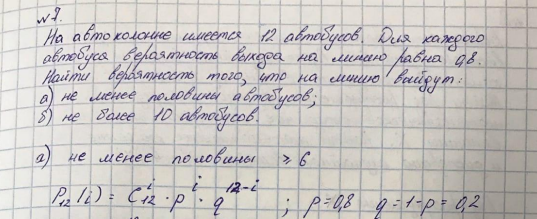 №7.
На автоколонне имеется 12 автобусов. Для каждого
автобуса вероятность выхода на линию равна 0,8.
Найти вероятность того, что на линию выйдут:
а) не менее половины автобусов;
б) не более 10 автобусов.
а) не менее половины ⩾ 6
P₁₂(i) = C₁₂ⁱ · pⁱ · q¹²⁻ⁱ ; p=0,8 q=1-p=0,2